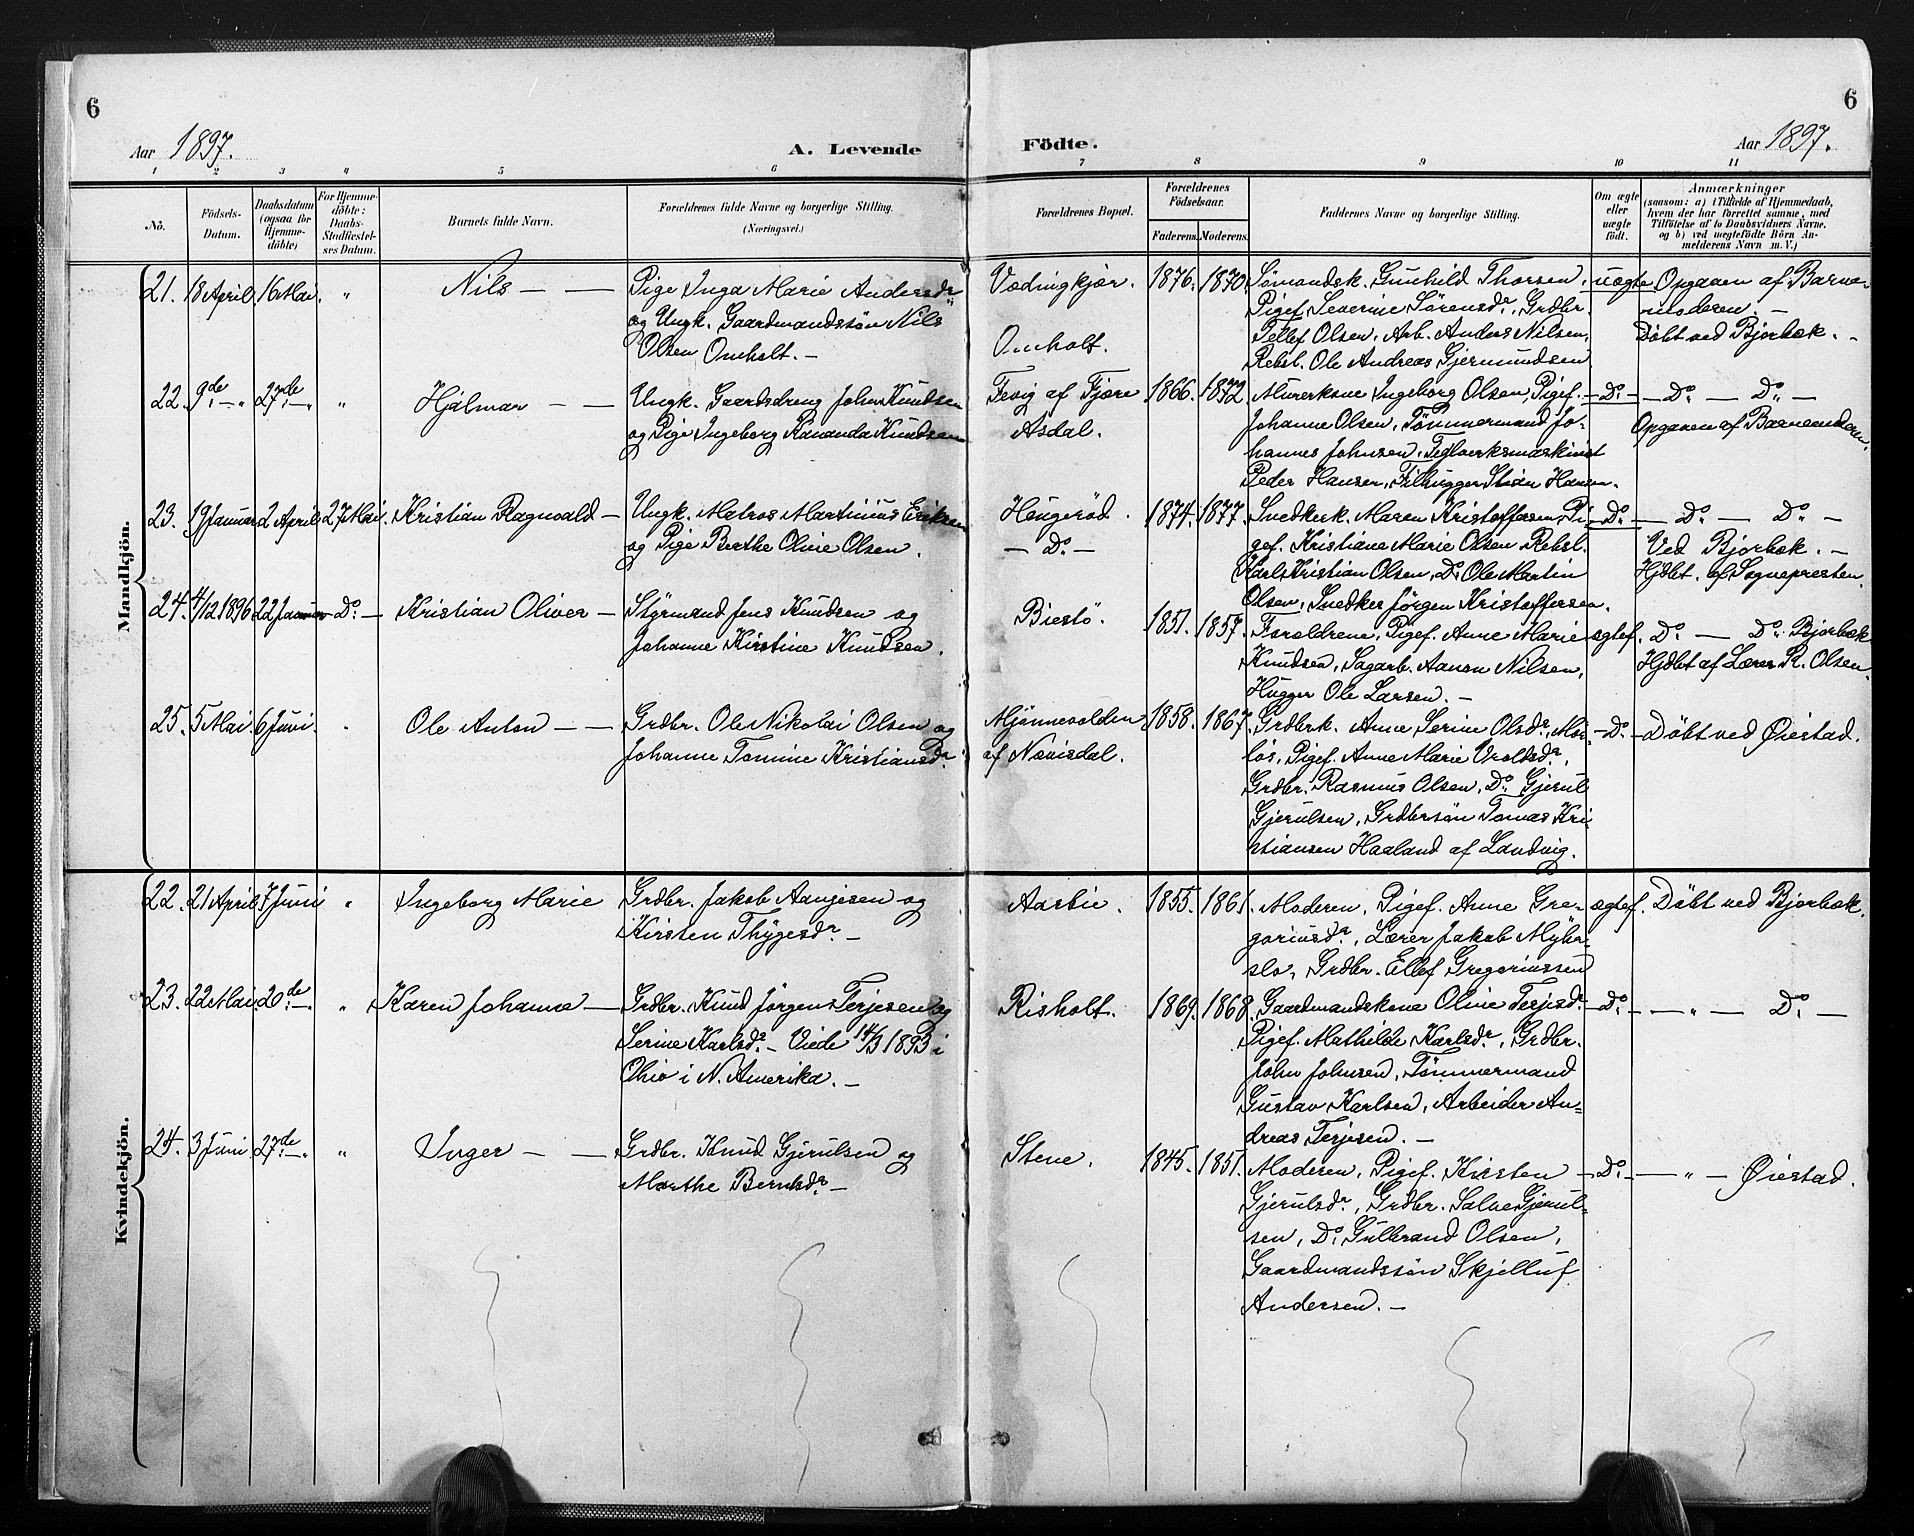 6
6
Aar 1897.
A. Levende
Födte.
Aar 1897.
1 2 3 4 5 6 7 8 9 10 11
No.
Födsels-
Datum.
Daabsdatum
(ogsaa for
Hjemme-
döbte)
For Hjemme-
döbte:
Daabs-
Stadfæstel-
ses Datum.
Barnets fulde Navn.
Forældrenes fulde Navne og borgerlige Stilling.
(Næringsvei.)
Forældrenes Bopæl.
Forældrenes
Födselsaar.
Faderens. Moderens.
Faddernes Navne og borgerlige Stilling.
Om ægte
eller
uægte
födt.
Anmærkninger
(saasom: a) i Tilfælde af Hjemmedaab,
hvem der har forrettet samme, med
Tilföielse af to Daabsvidners Navne,
og b) ved uægtefödte Börn An-
melderens Navn m. V.)
Mandkjön.
21. 18 April. 16 Mai. " Nils — —
Pige Inga Marie Andersdr
og Ungk. Gaardmandssön Nils
Olsen Omholt. —
Vædringkjær.
Omholt.
1876. 1870.
Sömandsk. Gunhild Thorsen,
Pigef. Severine Sörensdr, Grdbr.
Tellef Olsen, Arb. Anders Nilsen,
Rebsl. Ole Andreas Gjermundsen
uægte
Opgaaen af Barne-
moderen. —
Döbt ved Bjorbæk. -
22. 9de — " 27de — " " Hjalmar — —
Ungk. Gaardsdreng John Knudsen
og Pige Ingeborg Kananda Knudsen
Fevig af Fjære
Asdal.
1866. 1872.
Murerkone Ingeborg Olsen, Pigef.
Johanne Olsen, Tömmermand Jo-
hannes Johnsen, Teglverksmaskinist
Peder Hansen, Filhugger Stian Hansen.
— Do —
— Do — Do —
Opgaaen af Barnemoderen.
23. 19 Januar 2 April 27 Mai. Kristian Ragnvald —
Ungk. Matros Martinius Eriksen
og Pige Berthe Oline Olsen.
Heugeröd.
— Do —
1874. 1877.
Snedkerk. Maren Kristoffersen, Pi-
gef. Kristiane Marie Olsen, Rebsl.
Karl Kristian Olsen, Do Ole Martin
Olsen, Snedker Jörgen Kristoffersen.
— Do —
— Do — Do —
Ved Bjorbæk. —
Hjdbt. af Sognepresten.
24. 4/12 1896 22 Januar Do — Kristian Oliver —
Styrmand Jens Knudsen og
Johanne Kirstine Knudsen.
Biestö.
1851. 1857.
Foraldrene, Pigef. Anne Marie
Knudsen, Sagarb. Aanon Nilsen,
Hugger Ole Larsen. —
ægtef.
Do — Do Bjorbæk
Hjdbt af Lærer R. Olsen.
25. 5 Mai. 6 Juni. " Ole Anton — —
Grdbr. Ole Nikolai Olsen og
Johanne Tomine Kristiansdr.
Mjönnevolden
af Nævisdal.
1858. 1867.
Grdbrk. Anne Serine Olsdr, Mör-
fös, Pigef. Anne Marie Vroldsdr,
Grdbr. Rasmus Olsen, Do Gjerul
Gjerulsen, Grdbrsön Tomas Kri-
stiansen Haaland af Landvig.
— Do —
Döbt ved Øiestad.
Kvindekjön.
22. 21 April. 7 Juni " Ingeborg Marie
Grdbr. Jakob Aanjesen og
Kirsten Thygesdr —
Aasbie.
1855. 1861.
Moderen, Pigef. Anne Gre-
goriusdr, Lærer Jakob Myhr-
slo, Grdbr. Ellef Gregoriussen
ægtef.
Döbt ved Bjorbæk.
23. 22 Mai. 20de — " Karen Johanne —
Grdbr. Knud Jörgen Terjesen og
Serine Karlsdr — Viede 14/3 1893 i
Ohio i N. Amerika. —
Risholt.
1869. 1868.
Gaardmandskone Oline Terjesdr
Pigef. Mathilde Karlsdr, Grdbr.
John Johnsen, Tömmermand
Gustav Karlsen, Arbeider An-
dreas Terjesen. —
— Do —
— " — Do —
24. 3 Juni 27de — " " Inger — —
Grdbr. Knud Gjerulsen og
Marthe Berntsdr —
Stene.
1845. 1851.
Moderen, Pigef. Kirsten
Gjerulsdr, Grdbr. Salve Gjerul-
sen, Do Gulbrand Olsen,
Gaardmandssön Skjelluf
Andersen. —
— Do —
— " — Øiestad.